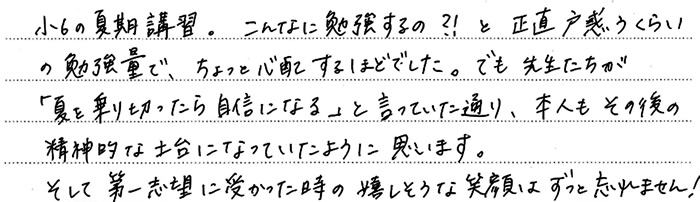 小6の夏期講習。こんなに勉強するの?!と正直戸惑うくらい
の勉強量で、ちょっと心配するほどでした。でも先生たちが
「夏を乗り切ったら自信になる」と言っていた通り、本人もその後の
精神的な土台になっていたように思います。
そして第一志望に受かった時の嬉しそうな笑顔はずっと忘れません!